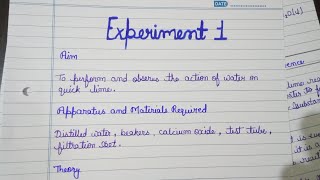 DATE
Experiment 1
Aim
To perform and observe the action of water on
quick lime.
Apparatus and Materials Required
Distilled water, beakers, calcium oxide, test tube,
filtration
Theory